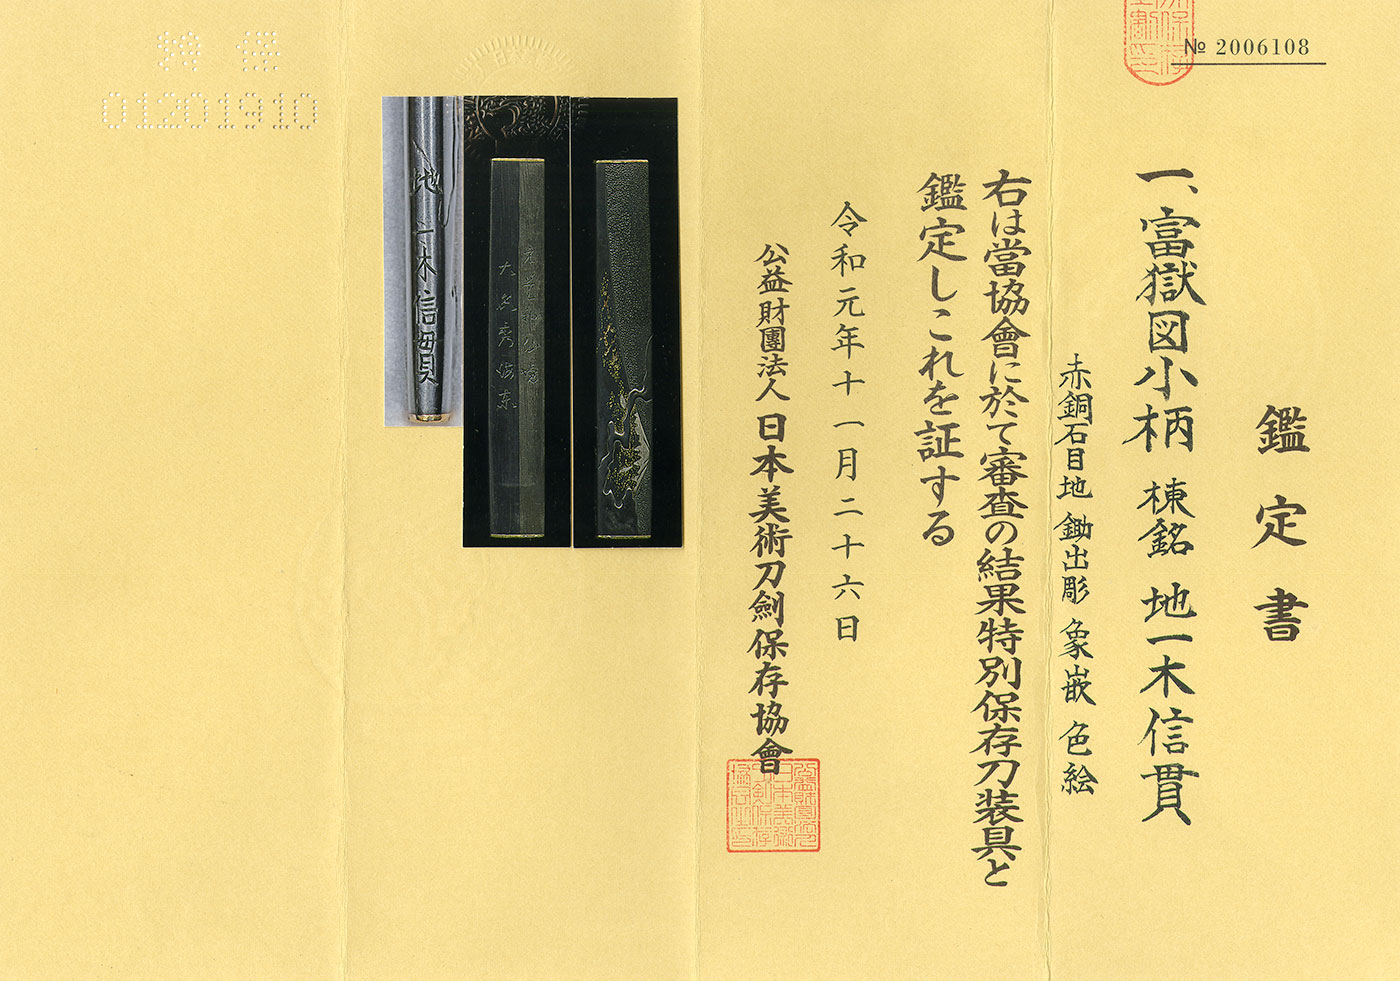 № 2006108
鑑定書
一、富嶽図小柄 棟銘 地一木信貫
赤銅石目地 鋤出彫 象嵌 色絵
右は當協會に於て審査の結果特別保存刀装具と
鑑定しこれを証する
令和元年十一月二十六日
公益財團法人 日本美術刀劍保存協會
地一木信貫
01201910